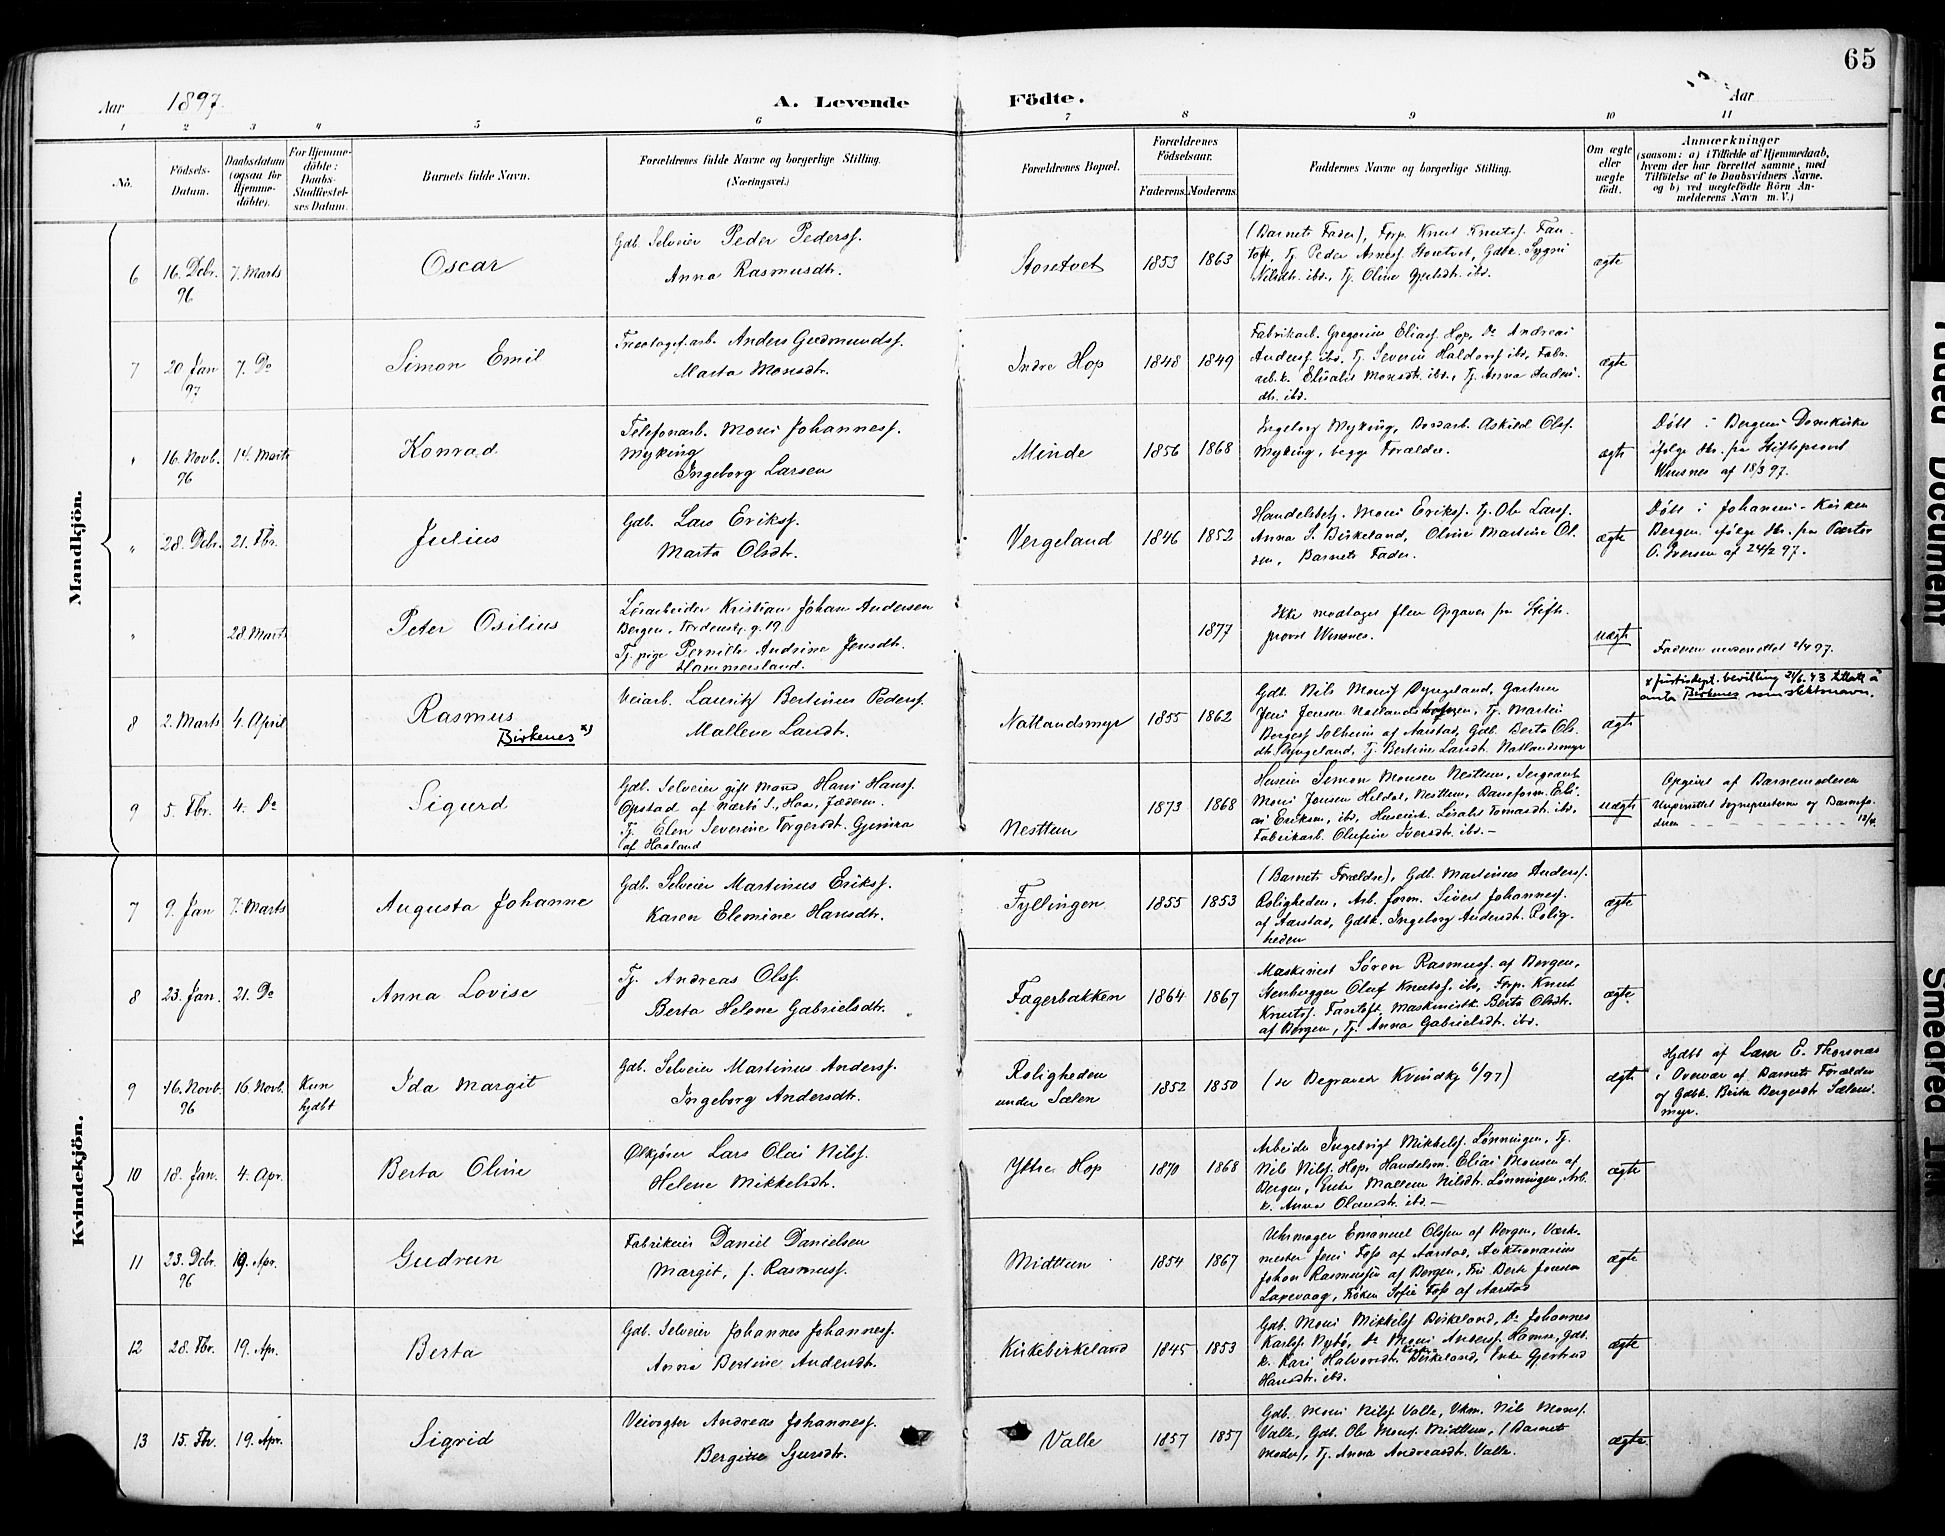 65
Aar 1897. A. Levende Födte. Aar
1 2 3 4 5 6 7 8 9 10 11
No. Födsels-Datum. Daabsdatum (ogsaa for Hjemme-döbte). For Hjemme-döbte: Daabs-Stadfæstel-ses Datum. Barnets fulde Navn. Forældrenes fulde Navne og borgerlige Stilling. (Næringsvei.) Forældrenes Bopæl. Forældrenes Födselsaar. Faderens. Moderens. Faddernes Navne og borgerlige Stilling. Om ægte eller uægte födt. Anmærkninger
(saasom: a) i Tilfælde af Hjemmedaab, hvem der har forrettet samme, med Tilföielse af to Daabsvidners Navne. og b) ved uægtefödte Börn Anmelderens Navn m. V.)
Mandkjön.
6 16. Debr. 96 7. Marts Oscar
Gdb. Selveier Peder Pedersf.
Anna Rasmusdtr.
Storetvet 1853 1863
(Barnets Fader), Forp. Knut Knutsf. Fan-
toft, Tj. Peder Arnesf. Storetvet, Gdbk. Sygni
Nilsdtr. ibd., Tj. Oline Gjertsdtr. ibd.
ægte
7 20 Jan 97 7. Do Simon Emil
Anders Gudmundsf.
Marta Monsdtr.
Indre Hop 1848 1849
Fabrikarb. Gregorius Eliasf. Hop, Do Andreas
Andersf. ibd. Tj. Severin Haldorsf ibd, Fabr.
arb. k. Elisabet Monsdtr. ibd., Tj. Anna Anders-
dtr. ibd.
ægte
" 16. Novb. 96 14. Marts Konrad
Telefonarb. Mons Johannesf.
Myking
Ingeborg Larsen
Minde 1856 1868
Ingeborg Myking, Askild Olsf.
Myking, begge Forældre.
ægte
Döbt i Bergens Domkirke
ifølge Atr. fra Stiftsprovst
Wensnes af 18/3 97.
" 28. Debr. 21. Fbr. Julius
Gdb. Lars Eriksf.
Marta Olsdtr.
Vergeland 1846 1852
Handelsbetj. Mons Eriksf. Tj. Ole Larsf.
Anna S. Birkeland, Oline Martine Ol-
sen, Barnets Fader.
ægte
Döbt i Johannes-Kirken
Bergen ifølge Atr. fra Pastor
O. Iversen af 24/2 97.
" 28. Marts Peter Osilius
Løsarbeider Kristian Johan Andersen
Bergen, g. 19.
Tj. pige Pernille Andrine Jensdtr.
Hammersland.
1877
Ikke modtaget flere Opgaver fra Stifts-
provst Wensnes.
uægte
Faderen underrettet 2/4 97.
8 2. Marts 4. April Rasmus
Birkenes x)
Veiarb. Lauritz Bertinus Pedersf.
Mallene Larsdtr.
Natlandsmyr 1855 1862
Gdb. Nils Monsf Dyngeland, Gartner
Jens Jensen Natlandshaugen, Tj. Martin
Bergesf Solheim af Aarstad, Gdb. Berta Ols-
dtr. Dyngeland, Tj. Bertine Larsdtr. Natlandsmyr
ægte
x justisdept. bevilling 21/6. 43 tillatt å
anta Birkenes som slektsnavn.
9 5. Fbr. 4. Do Sigurd
Gdb. Selveier gift Mand Hans Hansf.
Opstad af Nærbö S., Haa, Jæderen.
Tj. Elen Severine Torgersdtr. Gjemra
af Haaland
Nesttun 1873 1868
Huseier Simon Monsen Nesttun, Sergeant
Mons Jensen Heldal, Nesttun, Baneform. Eli-
as Eriksen, ibd, Husejersk. Lisabet Tomasdtr. ibd,
Fabrikarb. Olufine Iversdtr. ibd. –
uægte
Opgivet af Barnemoderen
Underrettet Sogneprresten og Barnefa-
deren 12/4.
Kvindekjön.
7 9. Jan 7. Marts Augusta Johanne
Gdb. Selveier Martinus Eriksf.
Karen Elemine Hansdtr.
Fyllingen 1855 1853
(Barnets Forældre), Gdb. Martinus Andersf.
Roligheden, Arb. form. Sivert Johannesf.
af Aarstad, Gdbk. Ingeborg Andersdtr. Rolig-
heden
ægte
8 23. Jan. 21. Do Anna Lovise
Tj. Andreas Olsf.
Berta Helene Gabrielsdtr.
Fagerbakken 1864 1867
Maskinist Sören Rasmusf. af Bergen,
Stenhugger Oluf Knutsf. ibd, Forp. Knut
Knutsf. Fantoft, Maskinistk. Berta Olsdtr.
af Bergen, Tj. Anna Gabrielsdtr. ibd.
ægte
9 16. Novb. 96 16. Novb. Kun hjdbt Ida Margit
Gdb. Selveier Martinus Andersf.
Ingeborg Andersdtr.
Roligheden
under Sælen 1852 1850
(se Begravede Kvindkj 6/97)
ægte
Hjdbt af Lærer E. Thorsnæs
i Overvær af Barnets Forældre
og Gdbk. Brita Bergesdtr Sælens-
myr.
10 18. Jan. 4. Apr. Berta Oline
Ølkjører Lars Olai Nilsf.
Helene Mikkelsdtr.
Ytre Hop 1870 1868
Arbeider Ingebrigt Mikkelsf. Lønningen, Tj.
Nils Nilsf. Hop, Handelsm. Elias Monsen af
Bergen, Enke Mallene Nilsdtr. Lønningen, Arb.
k. Anna Olavesdtr. ibd –
ægte
11 23. Debr. 96 19. Apr. Gudrun
Fabrikeier Daniel Danielsen
Margit, f. Rasmusf.
Midttun 1854 1867
Uhrmager Emanuel Olsen af Bergen, Værk-
mester Jens Foss af Aarstad, Auktionarius
Johan Rasmussen af Bergen, Fru Berte Jonsen
Laxevaag, Fröken Sofie Foss af Aarstad
ægte
12 28. Fbr. 19. Apr. Berta
Gdb. Selveier Johannes Johannesf.
Anna Bertine Andersdtr.
Kirkebirkeland 1845 1853
Gdb. Mons Mikkelsf Birkeland, Do Johannes
Karlsf. Nybø, Do Mons Andersf. Hamre, Gdb.
k. Kari Halvorsdtr. Kirke Birkeland, Enke Gjertrud
Hansdtr. ibd.
ægte
13 15. Fbr. 19. Apr. Sigrid
Veivogter Andreas Johannesf.
Bergitte Sjursdtr.
Valle 1857 1857
Gdb. Mons Nilsf Valle, Ukm. Nils Monsf.
Valle, Gdb. Ole Monsf. Midttun, (Barnets
Moder), Tj. Anna Andreasdtr. Valle.
ægte
Faded Document
Smeared Ink